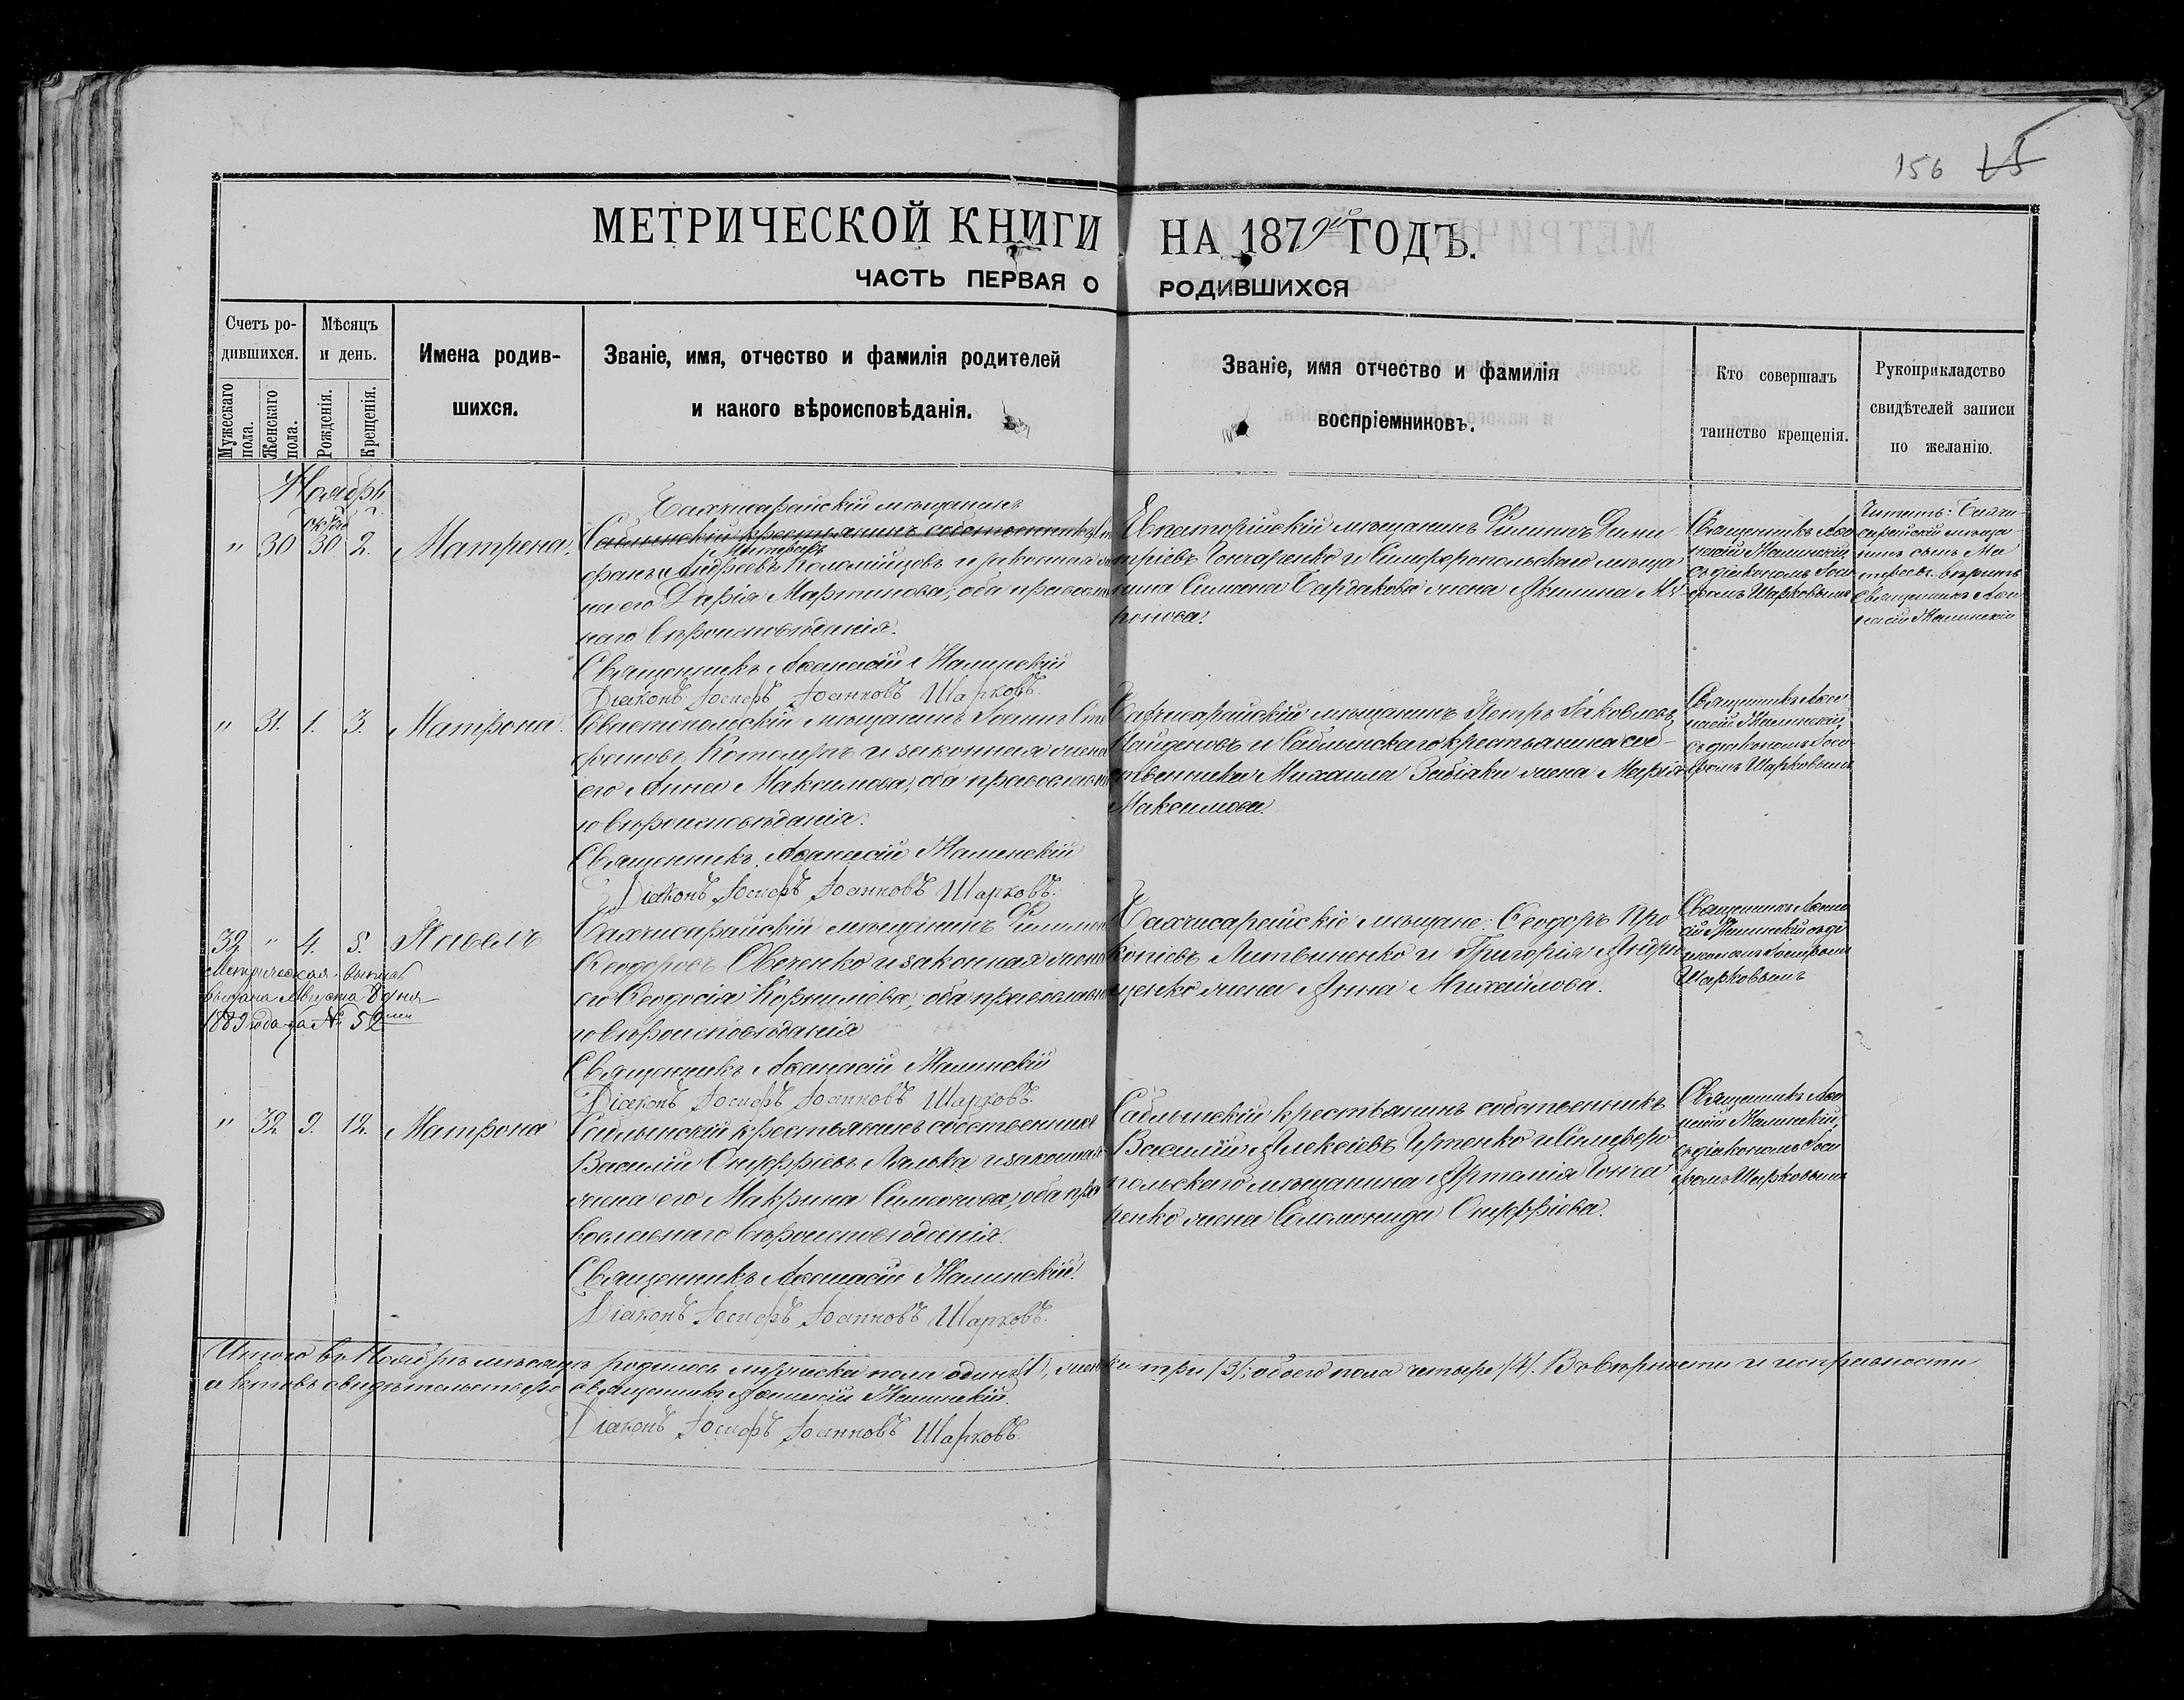 156 15
МЕТРИЧЕСКОЙ КНИГИ НА 1879й ГОДЪ.
ЧАСТЬ ПЕРВАЯ О РОДИВШИХСЯ
Счетъ ро-
дившихся.
Мужескаго
пола.
Женскаго
пола.
Мѣсяцъ
и день.
Рожденія.
Крещенія.
Имена родив-
шихся.
Званіе, имя, отчество и фамилія родителей
и какого вѣроисповѣданія.
Званіе, имя отчество и фамилія
воспріемниковъ.
Кто совершалъ
таинство крещенія.
Рукоприкладство
свидѣтелей записи
по желанію.
Ноябрь
" 30 30 2. Матрена.
Бахчисарайскій мѣщанинъ
Саблынскій крестьянинъ собственникъ
Матвѣевъ
Андреевъ Коломійцевъ и законная
на его Дарія Мартинова, оба православ
наго вѣроисповѣданія.
Священникъ Аѳанасій Малинскій
Діаконъ Іосифъ Іоанновъ Шарковъ.
Евпаторійскій мѣщанинъ Филиппъ Дими
тріевъ Гончаренко и Симферопольскаго мѣща
нина Симеона Бардакова жена Акилина Ми
ронова.
Священникъ Аѳа
насій Малинскій
съ діакономъ Іоси
фомъ Шарковымъ
Читать: Бахчи
сарайскій мѣща
нинъ сынъ Ма
твѣевъ вѣрить
Священникъ Аѳа
насій Малинскій
" 31. 1. 3. Матрона.
Севастопольскій мѣщанинъ Іоаннъ Сте
фановъ Котляръ и законная жена
его Анна Максимова, оба православна
го вѣроисповѣданія.
Священникъ Аѳанасій Малинскій
Діаконъ Іосифъ Іоанновъ Шарковъ.
Бахчисарайскій мѣщанинъ Петръ Яковлевъ
Найденовъ и Саблынскаго крестьянина соб-
ственника Михаила Забіяки жена Марія
Максимова.
Священникъ Аѳа
насій Малинскій
съ діакономъ Іоси
фомъ Шарковымъ
32 " 4. 5. Павелъ
Метрическая выпись
выдана Августа 8 дня
1889 года за № 52
Бахчисарайскій мѣщанинъ Филиппъ
Ѳеодоровъ Овченко и законная жена
его Ѳеодосія Корниліева, оба православна
го вѣроисповѣданія
Священникъ Аѳанасій Малинскій
Діаконъ Іосифъ Іоанновъ Шарковъ.
Бахчисарайскіе мѣщане: Ѳеодоръ Про
копіевъ Литвиненко и Григорія Андрю
щенко жена Анна Михайлова.
Священникъ Аѳана
сій Малинскій съ ді
акономъ Іосифомъ
Шарковымъ
" 32. 9. 12. Матрона
Саблынскій крестьянинъ собственникъ
Василій Онуфріевъ Лялька и законная
жена его Макрина Симеонова, оба пра
вославнаго вѣроисповѣданія.
Священникъ Аѳанасій Малинскій.
Діаконъ Іосифъ Іоанновъ Шарковъ.
Саблынскій крестьянинъ собственникъ
Василій Алексіевъ Ирпенко и Симферо
польскаго мѣщанина Артемія Гонча
ренко жена Соломонида Онуфріева.
Священникъ Аѳа
насій Малинскій,
съ діакономъ Іоси
фомъ Шарковымъ
Итого въ Ноябрѣ мѣсяцѣ родилось мужеска пола одинъ /1/, женска три /3/; обоего пола четыре /4/. Въ вѣрности и исправности
актовъ свидѣтельствую священникъ Аѳанасій Малинскій.
Діаконъ Іосифъ Іоанновъ Шарковъ